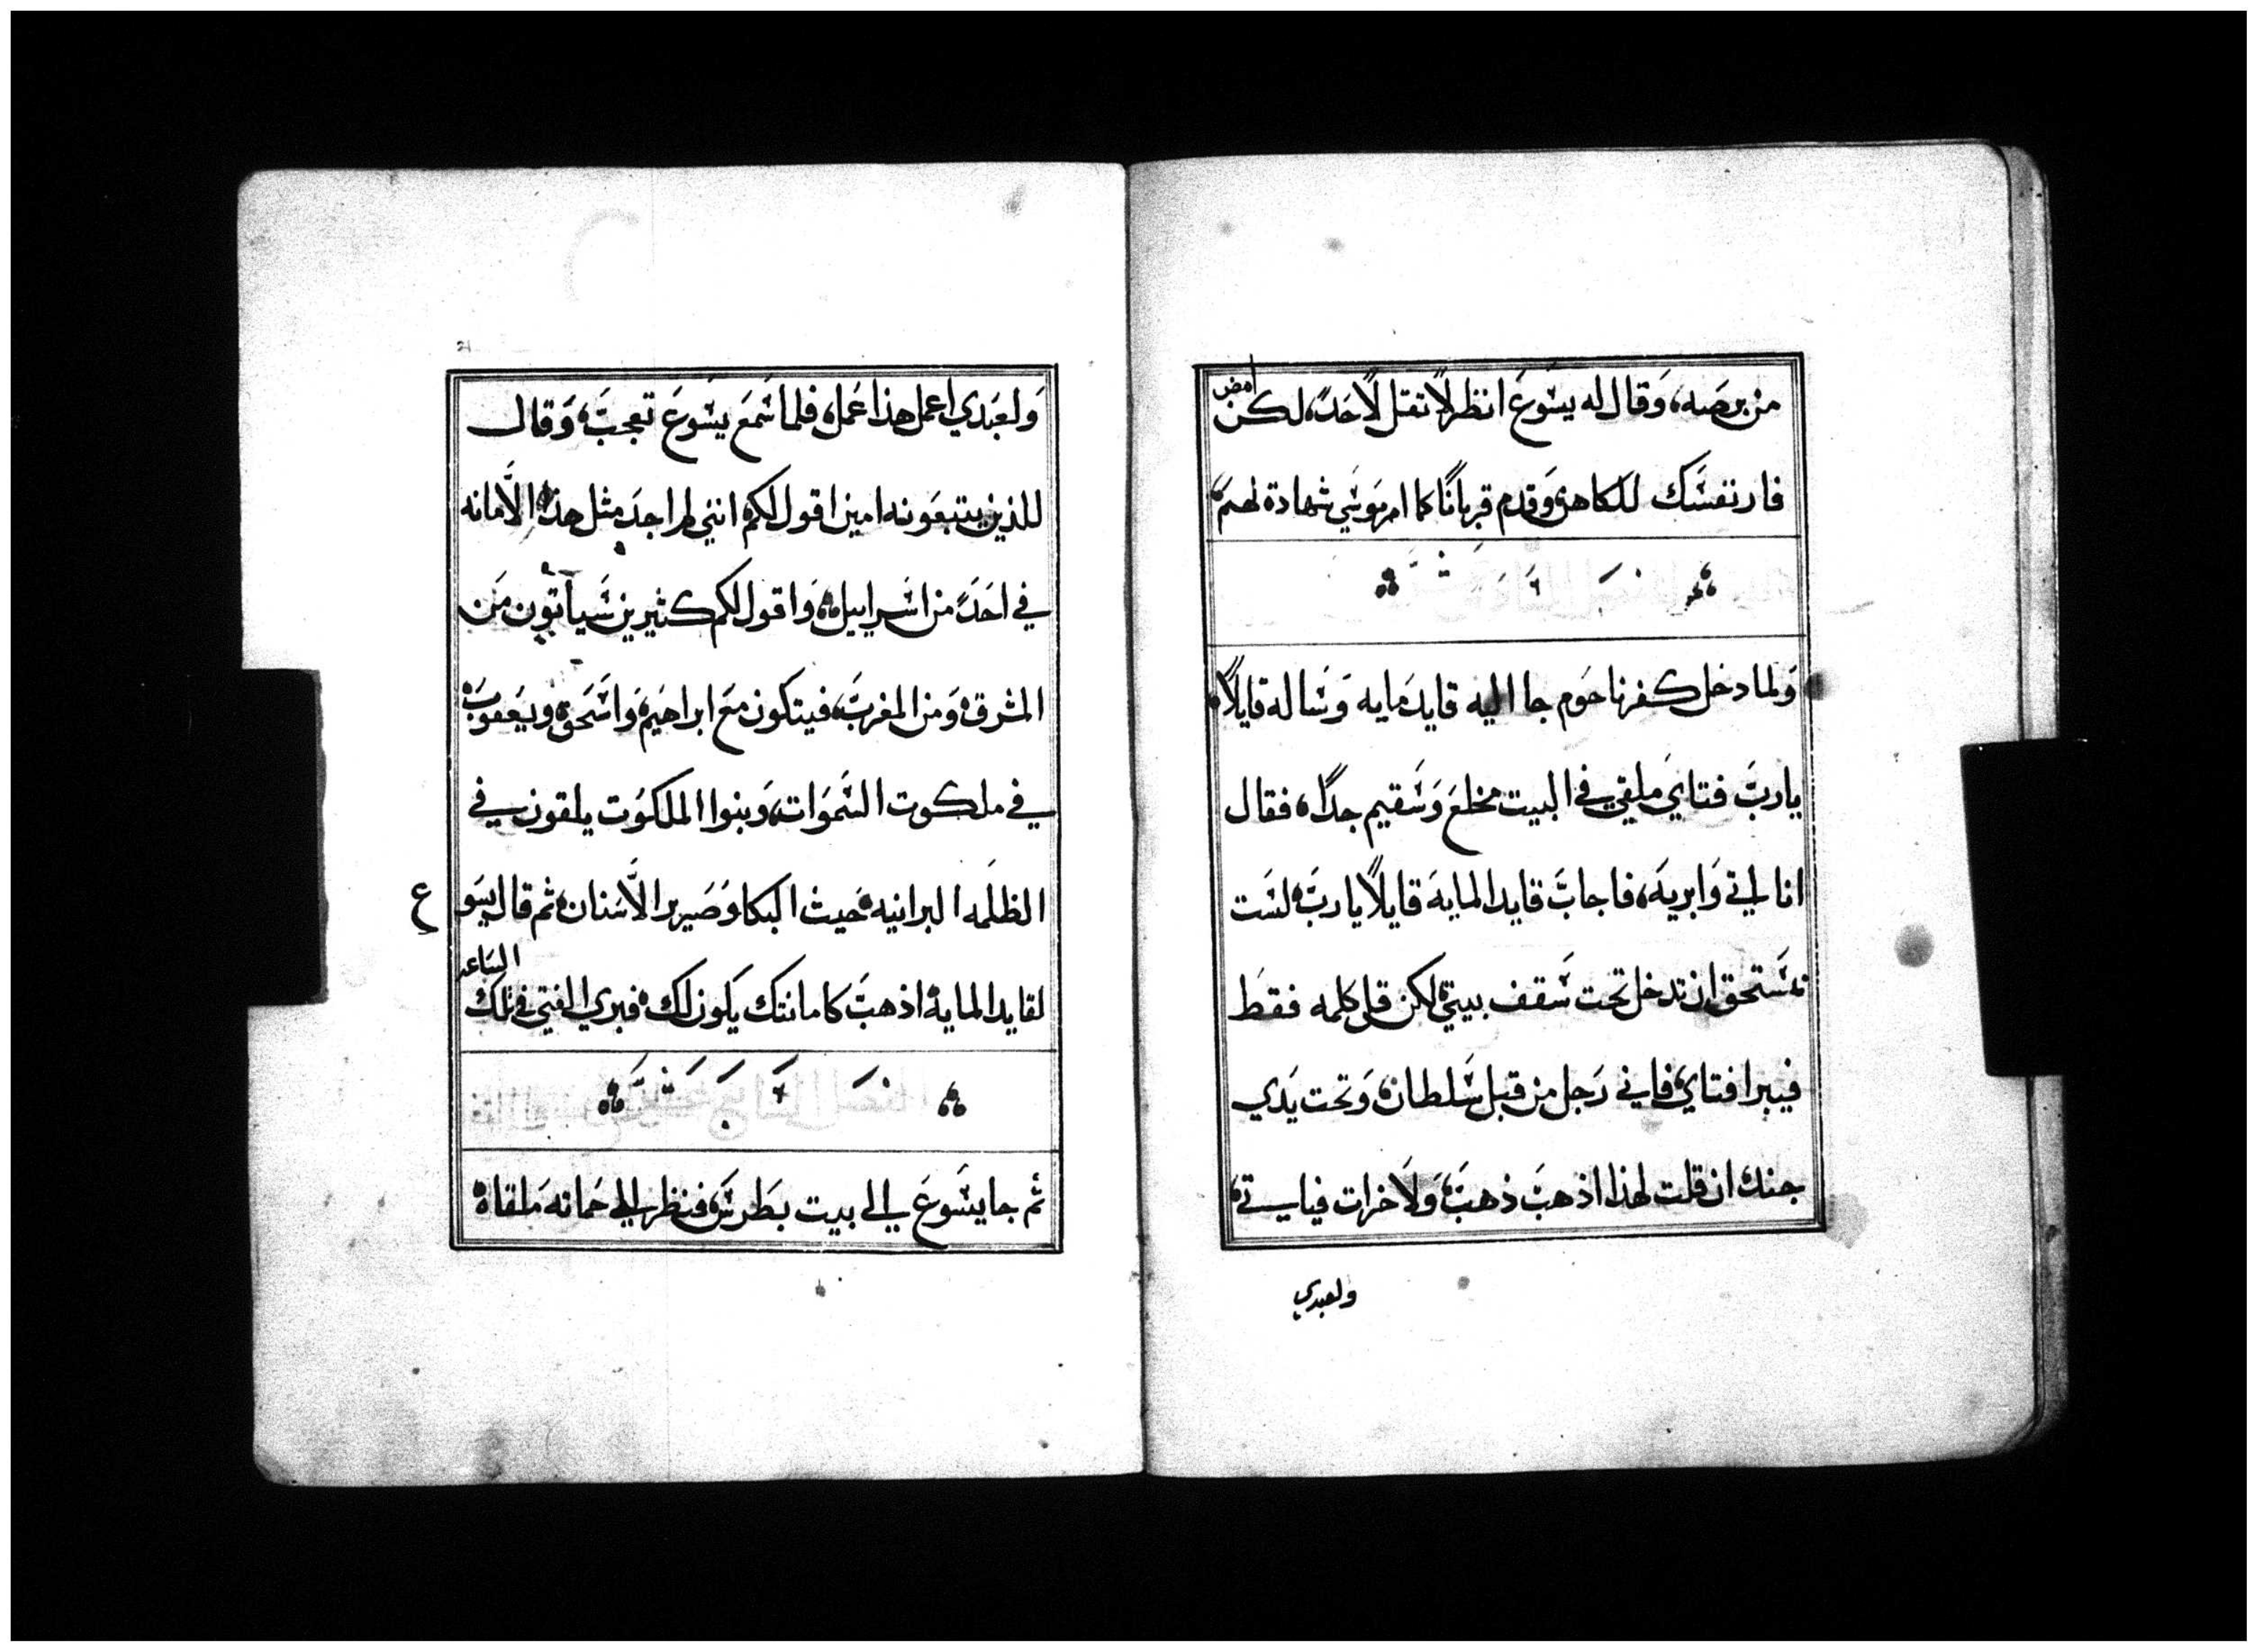 من برصه، وَقال له يسَوعَ انظر لا تقل لاحَد، لكن امض
فارنفسَك للكاهن وَقدم قربانًا كما امر موسَي شهادة لهمَ
وَلما دخل كفرناحَوم جا اليه قايد مايه وَسَاله قايلًا
يا ربَ فتايَ ملقي في البيت مخلعَ وَسَقيم جدًا، فقال
انا اتي وَابريه، فاجابَ قايد المايه قايلًا يا ربَ لسَت
نمسَتحق ان تدخل تحت سَقف بيتي لكن قل كلمه فقطَ
فيبرا فتاي فاني رَجل من قبل سَلطان وَتحت يَدي
جند ان قلت لهذا اذهبَ ذهبَ، وَلاخرات فياتي
ولعبدي
وَلعبَدي اعمل هذا عَمل، فلما سَمعَ يسَوعَ تعجبَ، وَقال
للذين يتبعَونه امين اقول لكم انني لم اجدَ مثل هذه الاَمانه
في احَدَ من اسَراييل، وَاقول لكم كثيرين سَياتون من
المشرق وَمن المغربَ، فيتكون معَ ابراهيمَ وَاسَحَق ويعَقوبَ
في ملكوت السَموَات، وَبنوا الملكوَت يلقون في
الظلمَه البرانيه حَيث البكا وَصَرير الاَسَنان ثم قال يسَوع
لقايد المايه اذهبَ كامانتك يكون لك فبري الفتي في تلك الساعه
ثم جا يسَوعَ الي بيت بطَرسَ، فنظر الي حَماته ملقاه